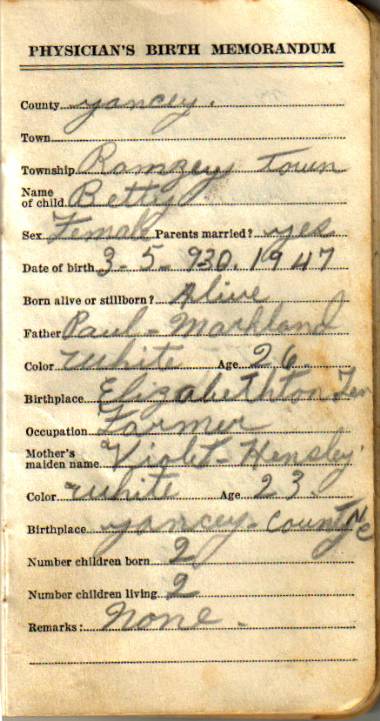 PHYSICIAN'S BIRTH MEMORANDUM
County yancey.
Town
Township Ramsey Town
Name of child Betty
Sex Female Parents married? yes
Date of birth 3-5-930. 1947
Born alive or stillborn? Alive
Father Paul-Markland
Color White Age 26.
Birthplace Elizabethton Ten
Occupation Farmer
Mother's maiden name Violet-Hensley
Color White Age 23.
Birthplace yancey-County Nc
Number children born 2
Number children living 2
Remarks: None.